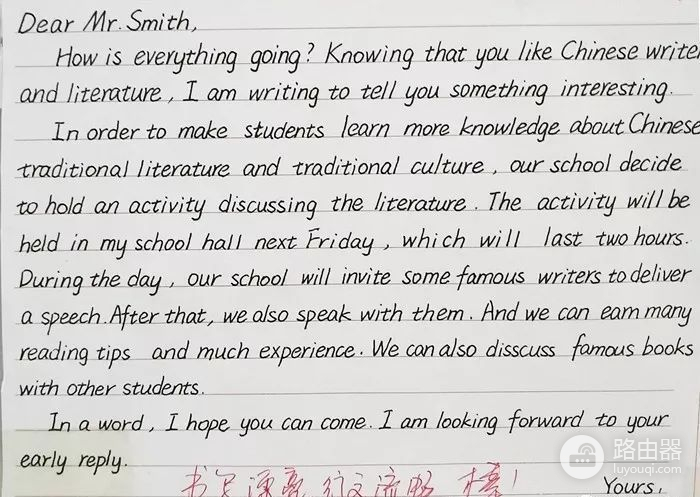 Dear Mr. Smith,
How is everything going? Knowing that you like Chinese write
and literature, I am writing to tell you something interesting.
In order to make students learn more knowledge about Chinese
traditional literature and traditional culture, our school decide
to hold an activity discussing the literature. The activity will be
held in my school hall next Friday, which will last two hours.
During the day, our school will invite some famous writers to deliver
a speech. After that, we also speak with them. And we can earn many
reading tips and much experience. We can also disscuss famous books
with other students.
In a word, I hope you can come. I am looking forward to your
early reply.
书写漂亮 行文流畅 棒!
Yours,
路由器
luyouqi.com